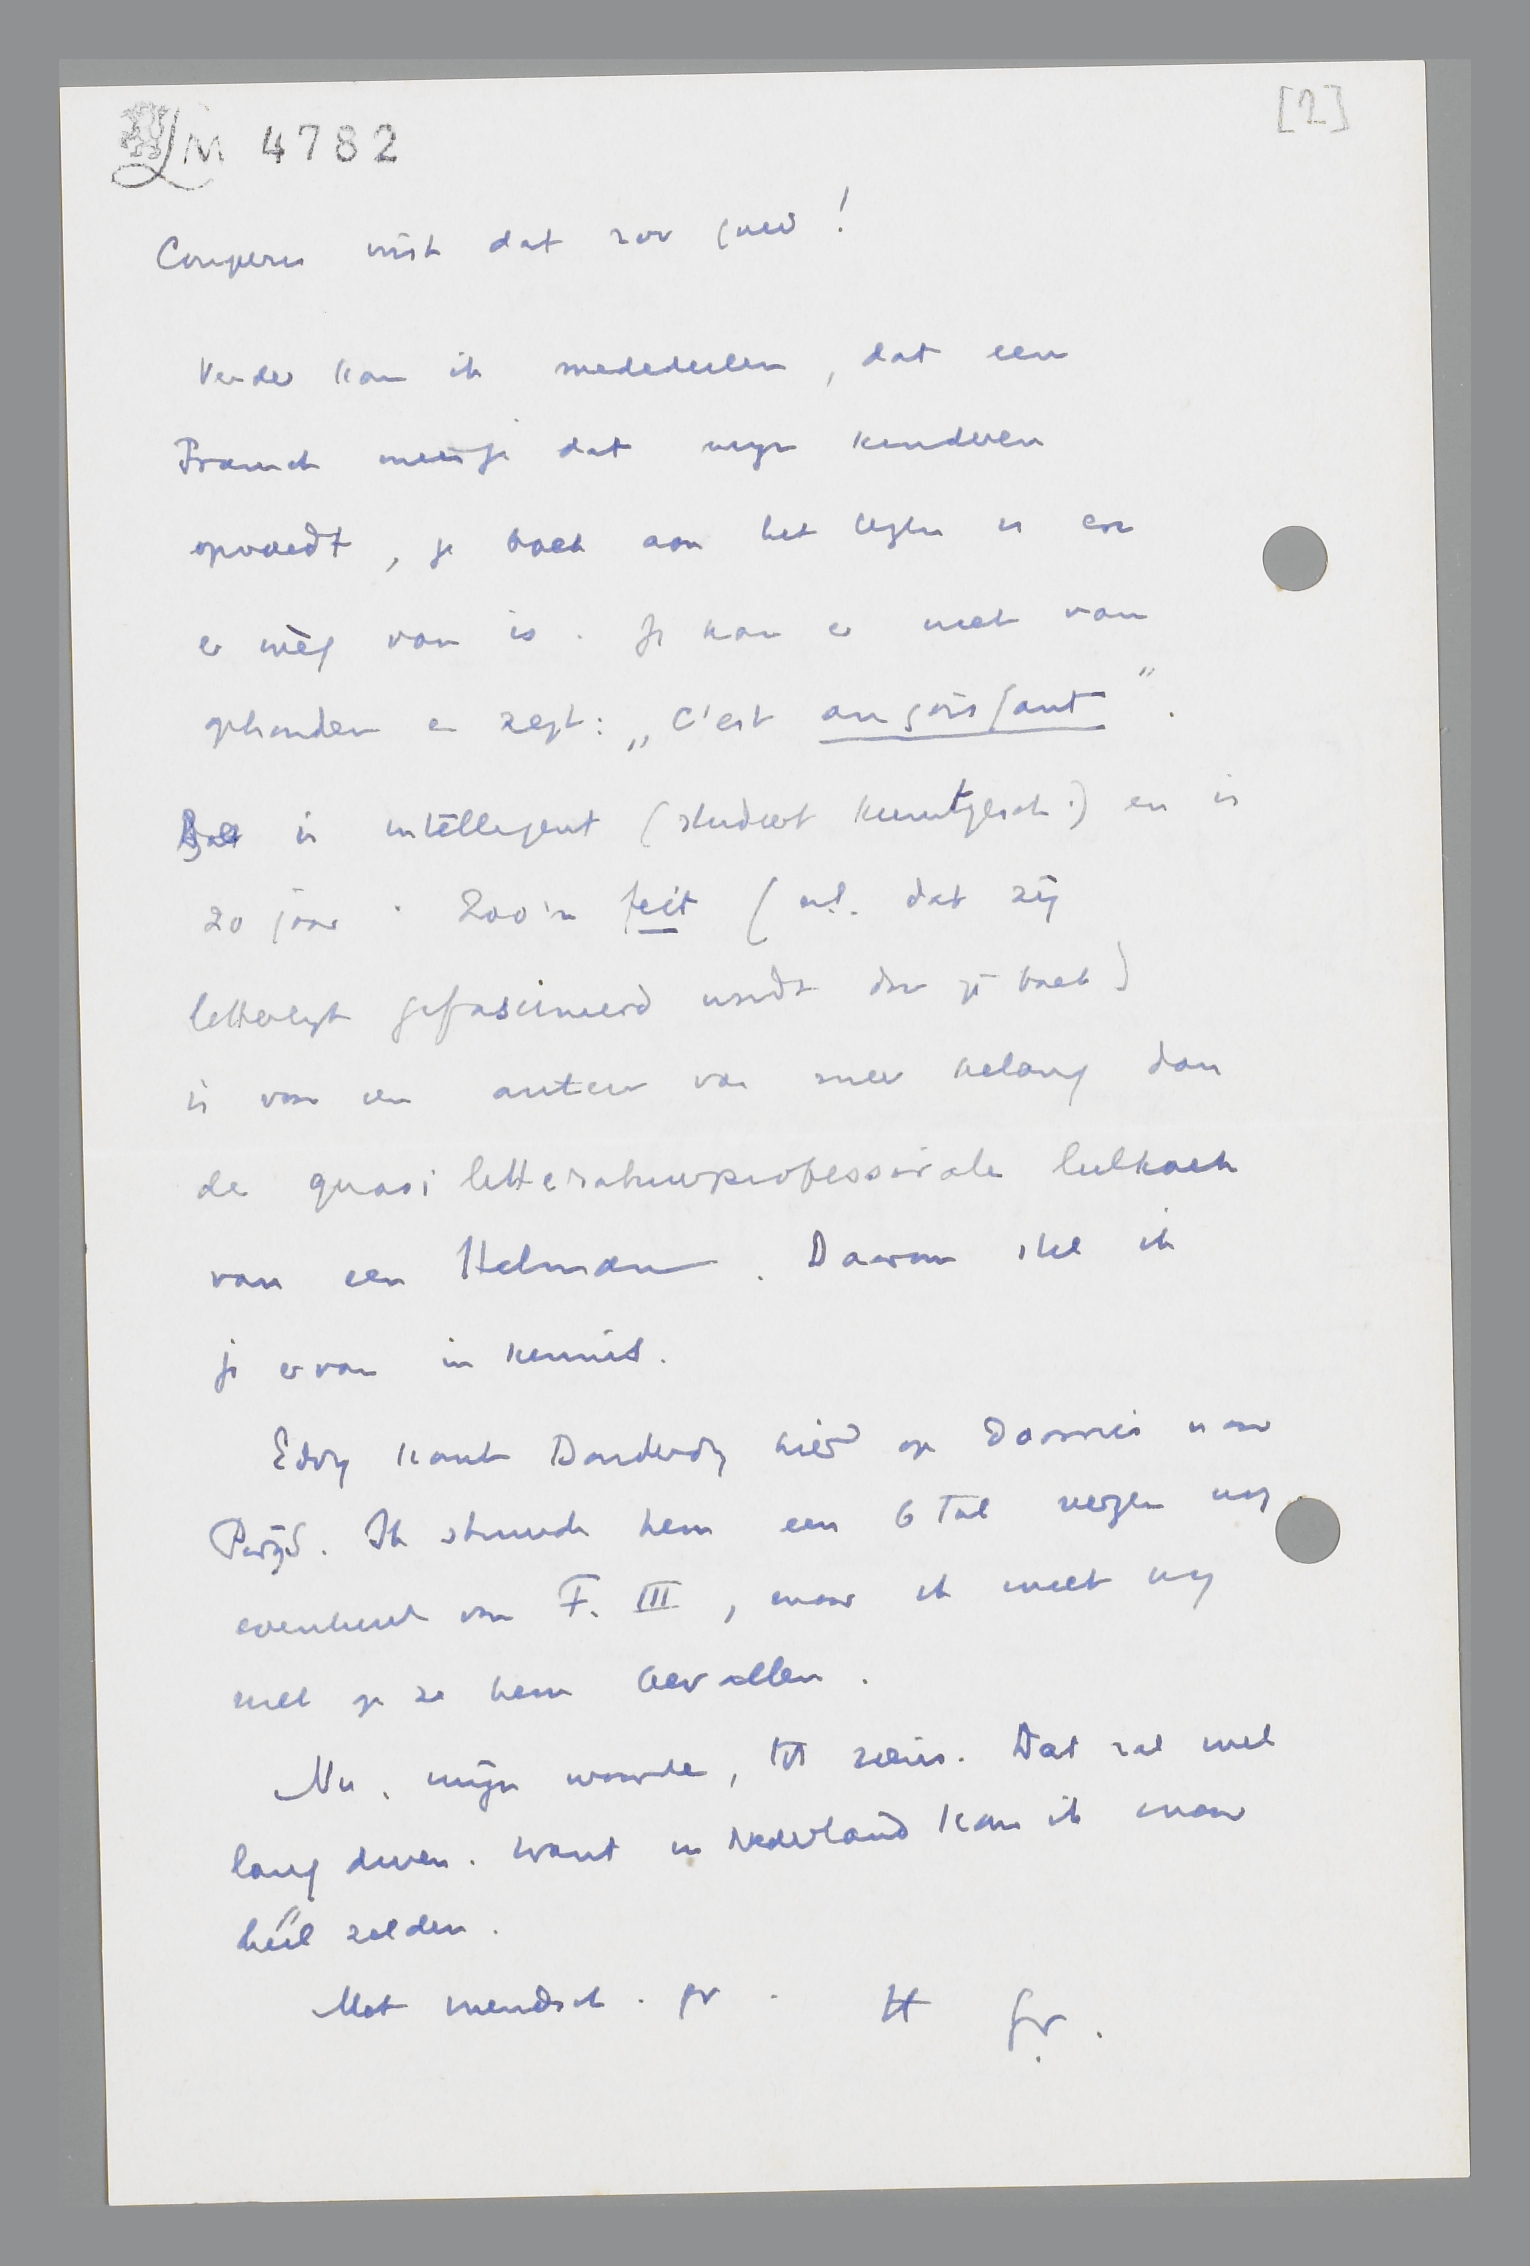 LM 4782
[2]
Couperus wist dat zoo goed!
Verder kan ik mededeelen, dat een
Fransch meisje dat mijn kinderen
opvoedt, je boek aan het lezen is en
er wèg van is. Ze kan er niet van
afhouden en zegt: „C'est angoissant".
Ze is intelligent (studeert kunstgesch.) en is
20 jaar. Zoo'n feit (nl. dat zij
letterlijk gefascineerd wordt door je boek)
is voor een auteur van meer belang dan
de quasi litteratuurprofessorale lulkoek
van een Helman. Daarom stel ik
je ervan in kennis.
Eddy komt Donderdag hier op doorreis naar
Parijs. Ik stuurde hem een 6 tal verzen
eventueel van F. III, maar ik weet nog
niet of ze hem bevallen.
Nu, mijn waarde, tot ziens. Dat zal wel
lang duren. Want in Nederland kom ik maar
héél zelden.
Met vriendsch. gr. H Gr.